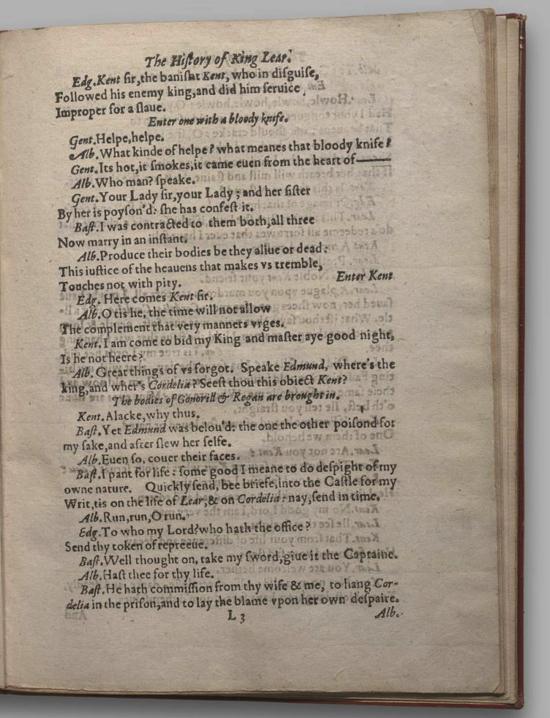 The Hiſtory of King Lear.
Edg. Kent ſir, the baniſht Kent, who in diſguiſe,
Followed his enemy king, and did him ſeruice
Improper for a ſlaue.
Enter one with a bloody knife.
Gent. Helpe, helpe.
Alb. What kinde of helpe? what meanes that bloody knife?
Gent. Its hot, it ſmokes, it came euen from the heart of———
Alb. Who man? ſpeake.
Gent. Your Lady ſir, your Lady; and her ſiſter
By her is poyſon'd: ſhe has confeſt it.
Baſt. I was contracted to them both, all three
Now marry in an inſtant.
Alb. Produce their bodies be they aliue or dead:
This iuſtice of the heauens that makes vs tremble,
Touches not with pity. Enter Kent
Edg. Here comes Kent ſir.
Alb. O tis he, the time will not allow
The complement that very manners vrges.
Kent. I am come to bid my King and maſter aye good night,
Is he not heere?
Alb. Great things of vs forgot. Speake Edmund, where's the
king, and wher's Cordelia? Seeſt thou this obiect Kent?
The bodies of Gonorill & Regan are brought in.
Kent. Alacke, why thus.
Baſt. Yet Edmund was belou'd: the one the other poiſond for
my ſake, and after ſlew her ſelfe.
Alb. Euen ſo, couer their faces.
Baſt. I pant for life: ſome good I meane to do deſpight of my
owne nature. Quickly ſend, bee briefe, into the Caſtle for my
Writ, tis on the life of Lear, & on Cordelia: nay, ſend in time.
Alb. Run, run, O run.
Edg. To who my Lord? who hath the office?
Send thy token of repreeue.
Baſt. Well thought on, take my ſword, giue it the Captaine.
Alb. Haſt thee for thy life.
Baſt. He hath commiſſion from thy wife & me, to hang Cor-
delia in the priſon, and to lay the blame vpon her own deſpaire.
L 3 Alb.